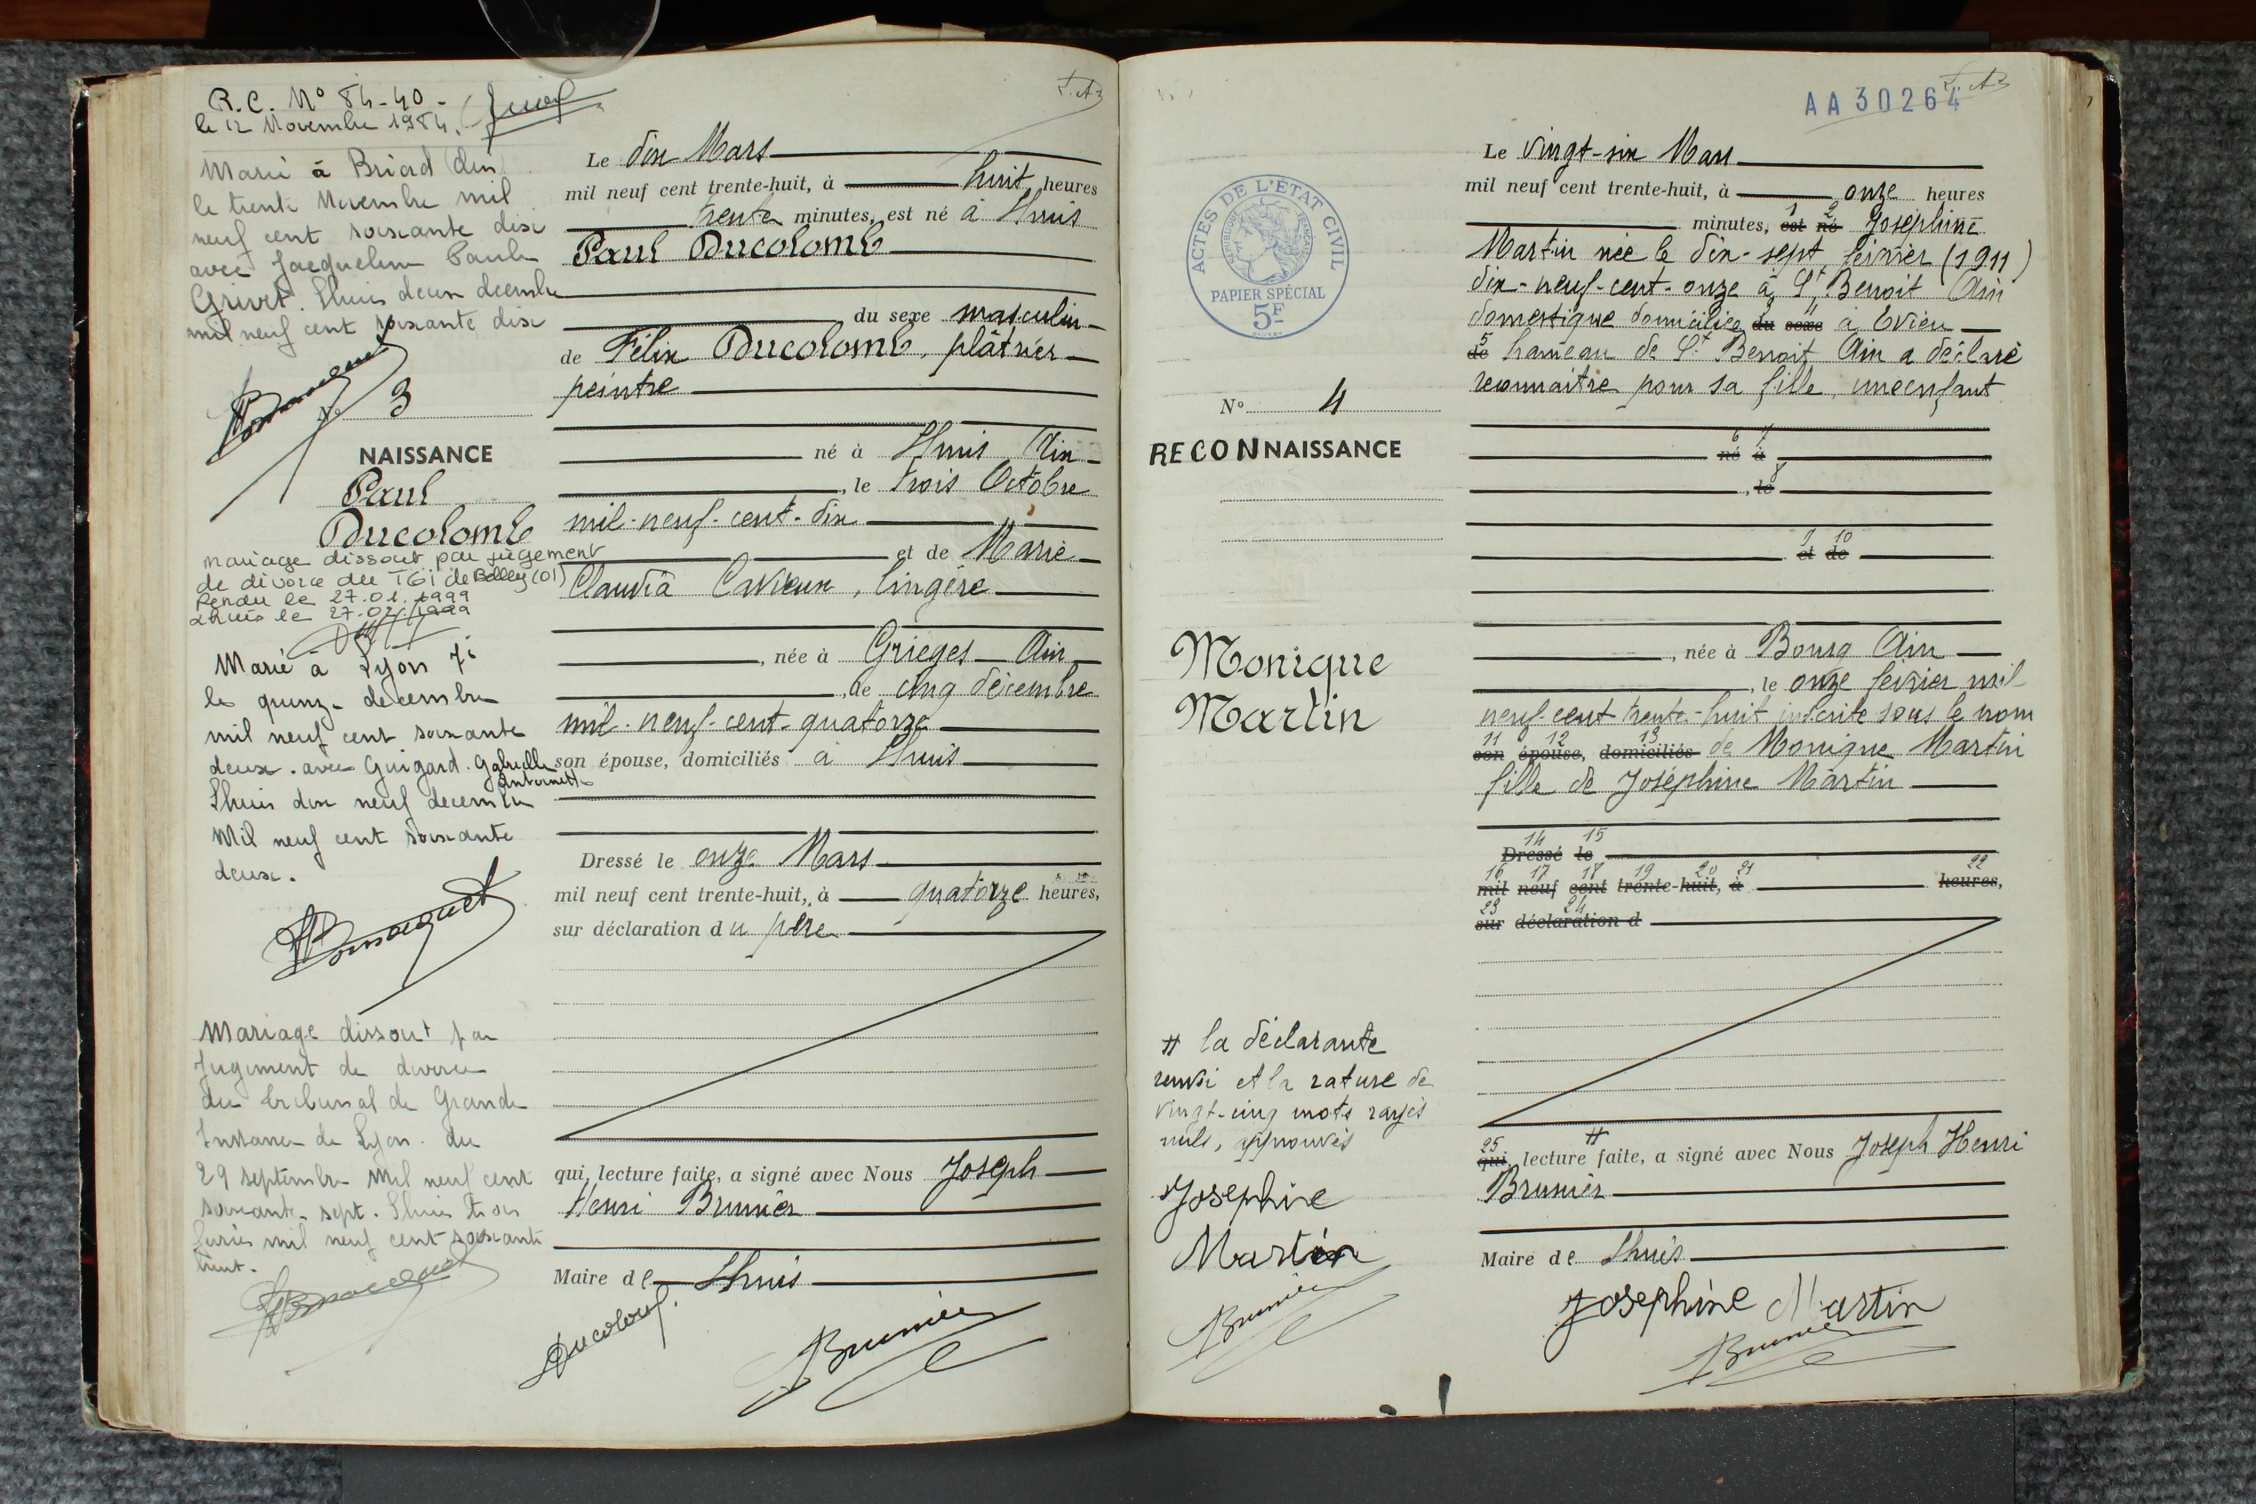 R.C. N° 84-40-
le 12 Novembre 1984.
Marié à Briord (Ain)
le trente Novembre mil
neuf cent soixante dix
avec Jacqueline Paule
Grivet. Lhuis deux décembre
mil neuf cent soixante dix
N° 3
NAISSANCE
Paul
Ducolomb
mariage dissout par jugement
de divorce du TGI de Belley (01)
Rendu le 27.01.1999
Lhuis le 27.02.1999
Marié à Lyon 7e
le quinze décembre
mil neuf cent soixante
deux. avec Guigard. Gabrielle
Antoinette
Lhuis dix neuf décembre
Mil neuf cent soixante
deux.
Mariage dissout par
Jugement de divorce
du tribunal de Grande
Instance de Lyon. du
29 septembre mil neuf cent
soixante-sept. Lhuis trois
mil neuf cent soixante
huit.
Le dix Mars
mil neuf cent trente-huit, à huit heures
trente minutes, est né à Lhuis
Paul Ducolomb
du sexe masculin
de Félix Ducolomb, plâtrier
peintre
né à Lhuis Ain
, le trois Octobre
mil-neuf-cent-dix
et de Marie
Claudia Cavieux, lingère
, née à Grièges Ain
, le cinq décembre
mil-neuf-cent-quatorze
son épouse, domiciliés à Lhuis
Dressé le onze Mars
mil neuf cent trente-huit, à quatorze heures,
sur déclaration du père
qui, lecture faite, a signé avec Nous Joseph
Henri Brunier
Maire de Lhuis
Ducolomb
Brunier
AA30264
ACTES DE L'ÉTAT CIVIL
PAPIER SPÉCIAL
5F
N° 4
RECONNAISSANCE
Monique
Martin
# la déclarante
renvoi et la rature de
vingt-cinq mots rayés
nuls, approuvés
Josephine
Martin
Brunier
Le vingt-six Mars
mil neuf cent trente-huit, à onze heures
1 2
minutes, est né Joséphine
Martin née le dix-sept février (1911)
dix-neuf-cent-onze à St Benoit Ain
domestique domiciliée du sexe à Evieu
5
de hameau de St Benoit Ain a déclaré
reconnaitre pour sa fille, une enfant
6 7
né à
8
, le
9 10
et de
, née à Bourg Ain
, le onze février mil
neuf-cent trente-huit inscrite sous le nom
11 12 13
son épouse, domiciliés de Monique Martin
fille de Joséphine Martin
14 15
Dressé le
16 17 18 19 20 21 22
mil neuf cent trente-huit, à heures,
23 24
sur déclaration d
25 #
qui, lecture faite, a signé avec Nous Joseph Henri
Brunier
Maire de Lhuis
Josephine Martin
Brunier